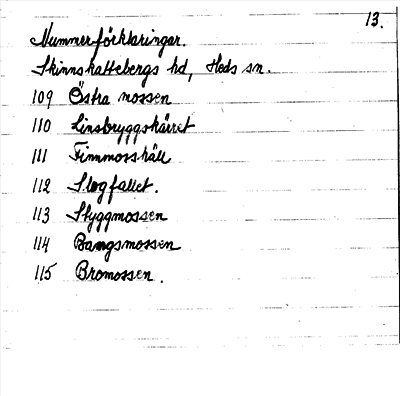 13.
Nummerförklaringar.
Skinnskattebergs hd, Heds sn.
109 Östra mossen
110 Linsbryggskärret
111 Finnmosshäll
112 Slogfallet.
113 Styggmossen
114 Bangsmossen
115 Bromossen.